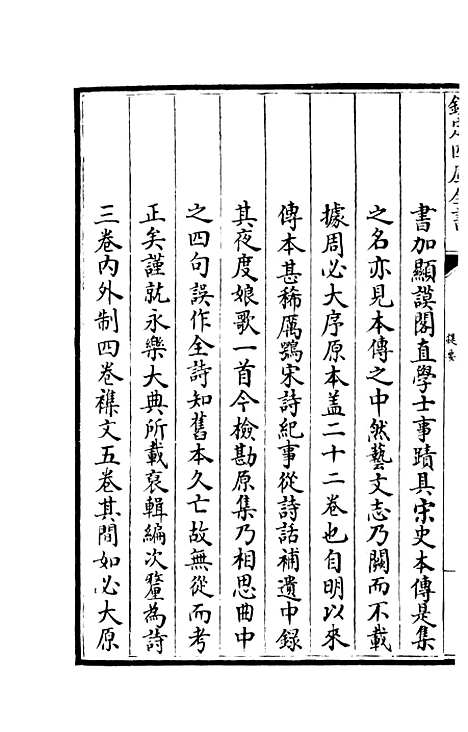 欽定四庫全書
提要
書加顯謨閣直學士事蹟具宋史本傳是集
之名亦見本傳之中然藝文志乃闕而不載
據周必大序原本蓋二十二卷也自明以來
傳本甚稀厲鶚宋詩紀事從詩話補遺中録
其夜度娘歌一首今檢勘原集乃相思曲中
之四句誤作全詩知舊本久亡故無從而考
正矣謹就永樂大典所載裒輯編次釐為詩
三卷内外制四卷襍文五卷其間如必大原